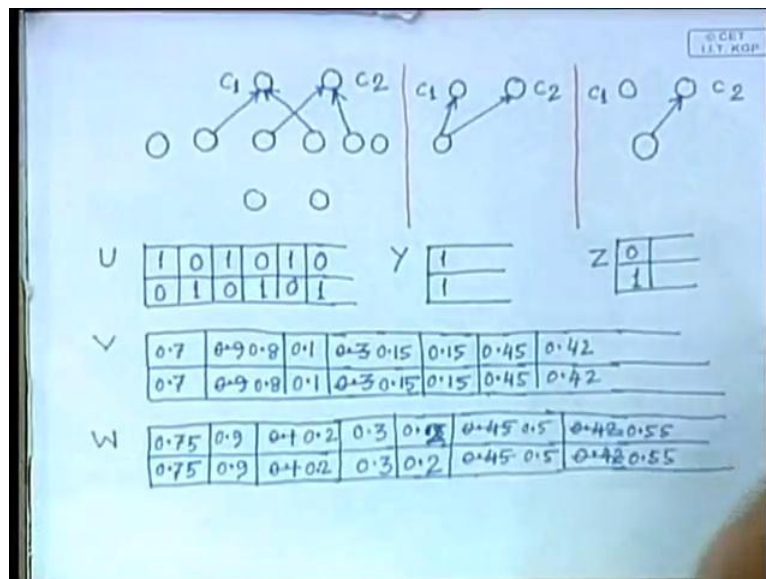 © CET
I.I.T. KGP
C1 C2 C1 C2 C1 C2
U 1 0 1 0 1 0 Y 1 Z 0
0 1 0 1 0 1 1 1
V 0.7 0.9 0.8 0.1 0.3 0.15 0.15 0.45 0.42
0.7 0.9 0.8 0.1 0.3 0.15 0.15 0.45 0.42
W 0.75 0.9 0.1 0.2 0.3 0.2 0.45 0.5 0.42 0.55
0.75 0.9 0.1 0.2 0.3 0.2 0.45 0.5 0.42 0.55